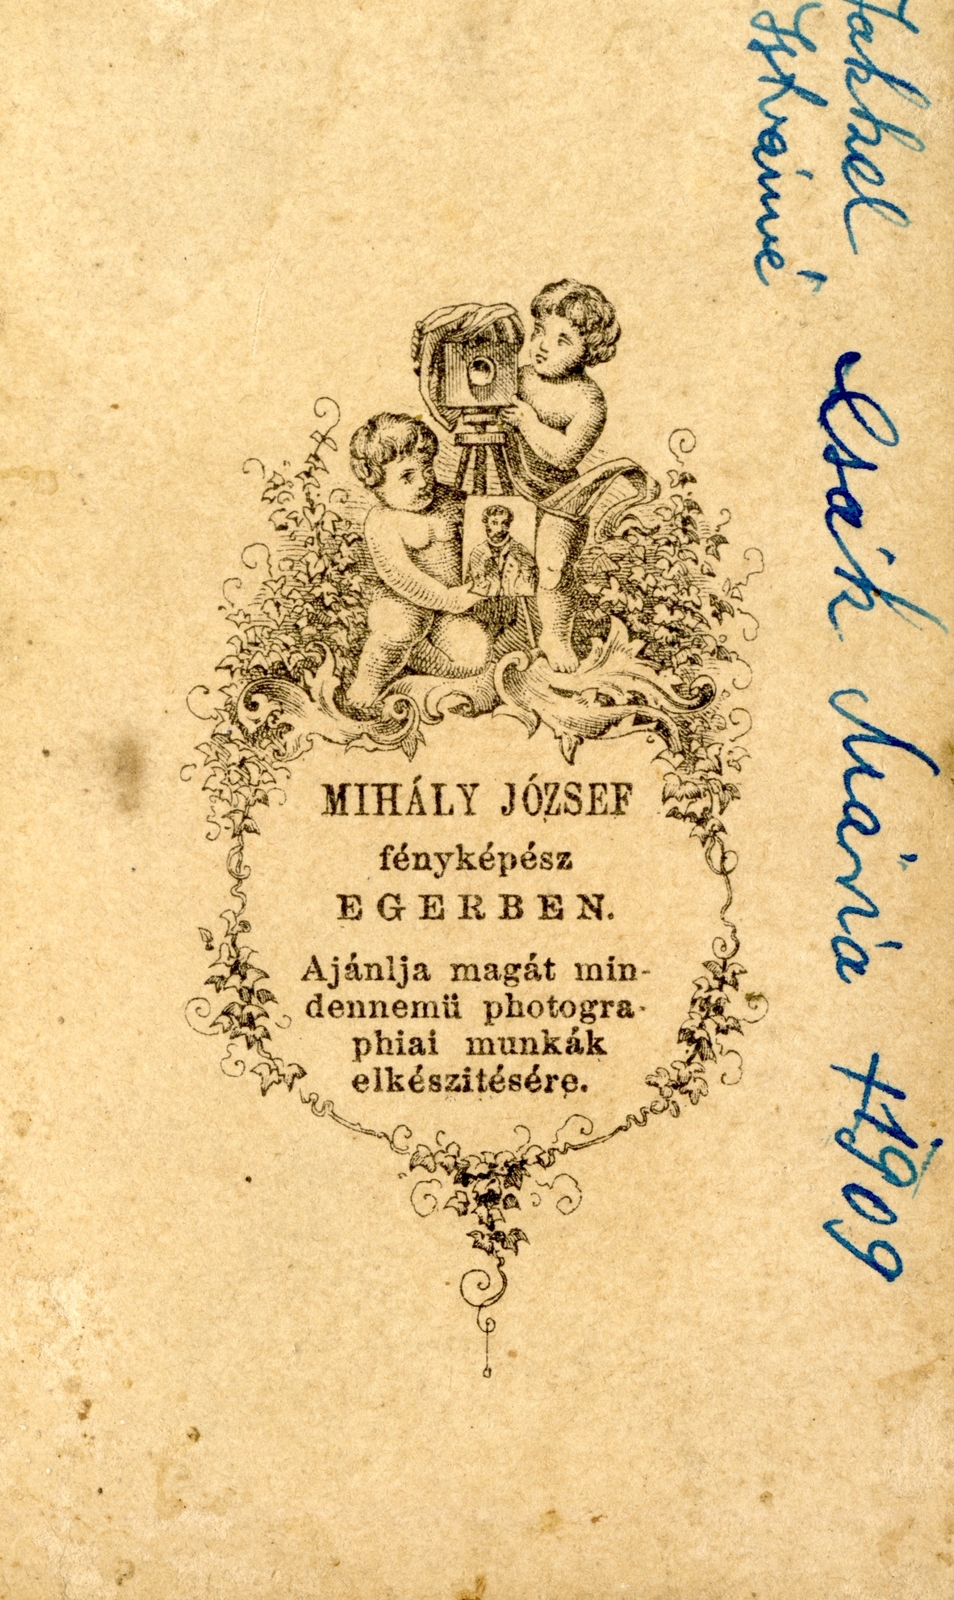 MIHÁLY JÓZSEF
fényképész
EGERBEN.
Ajánlja magát min-
dennemü photogra-
phiai munkák
elkészitésére.
Jakkel Csák Mária †1909
Istvánné